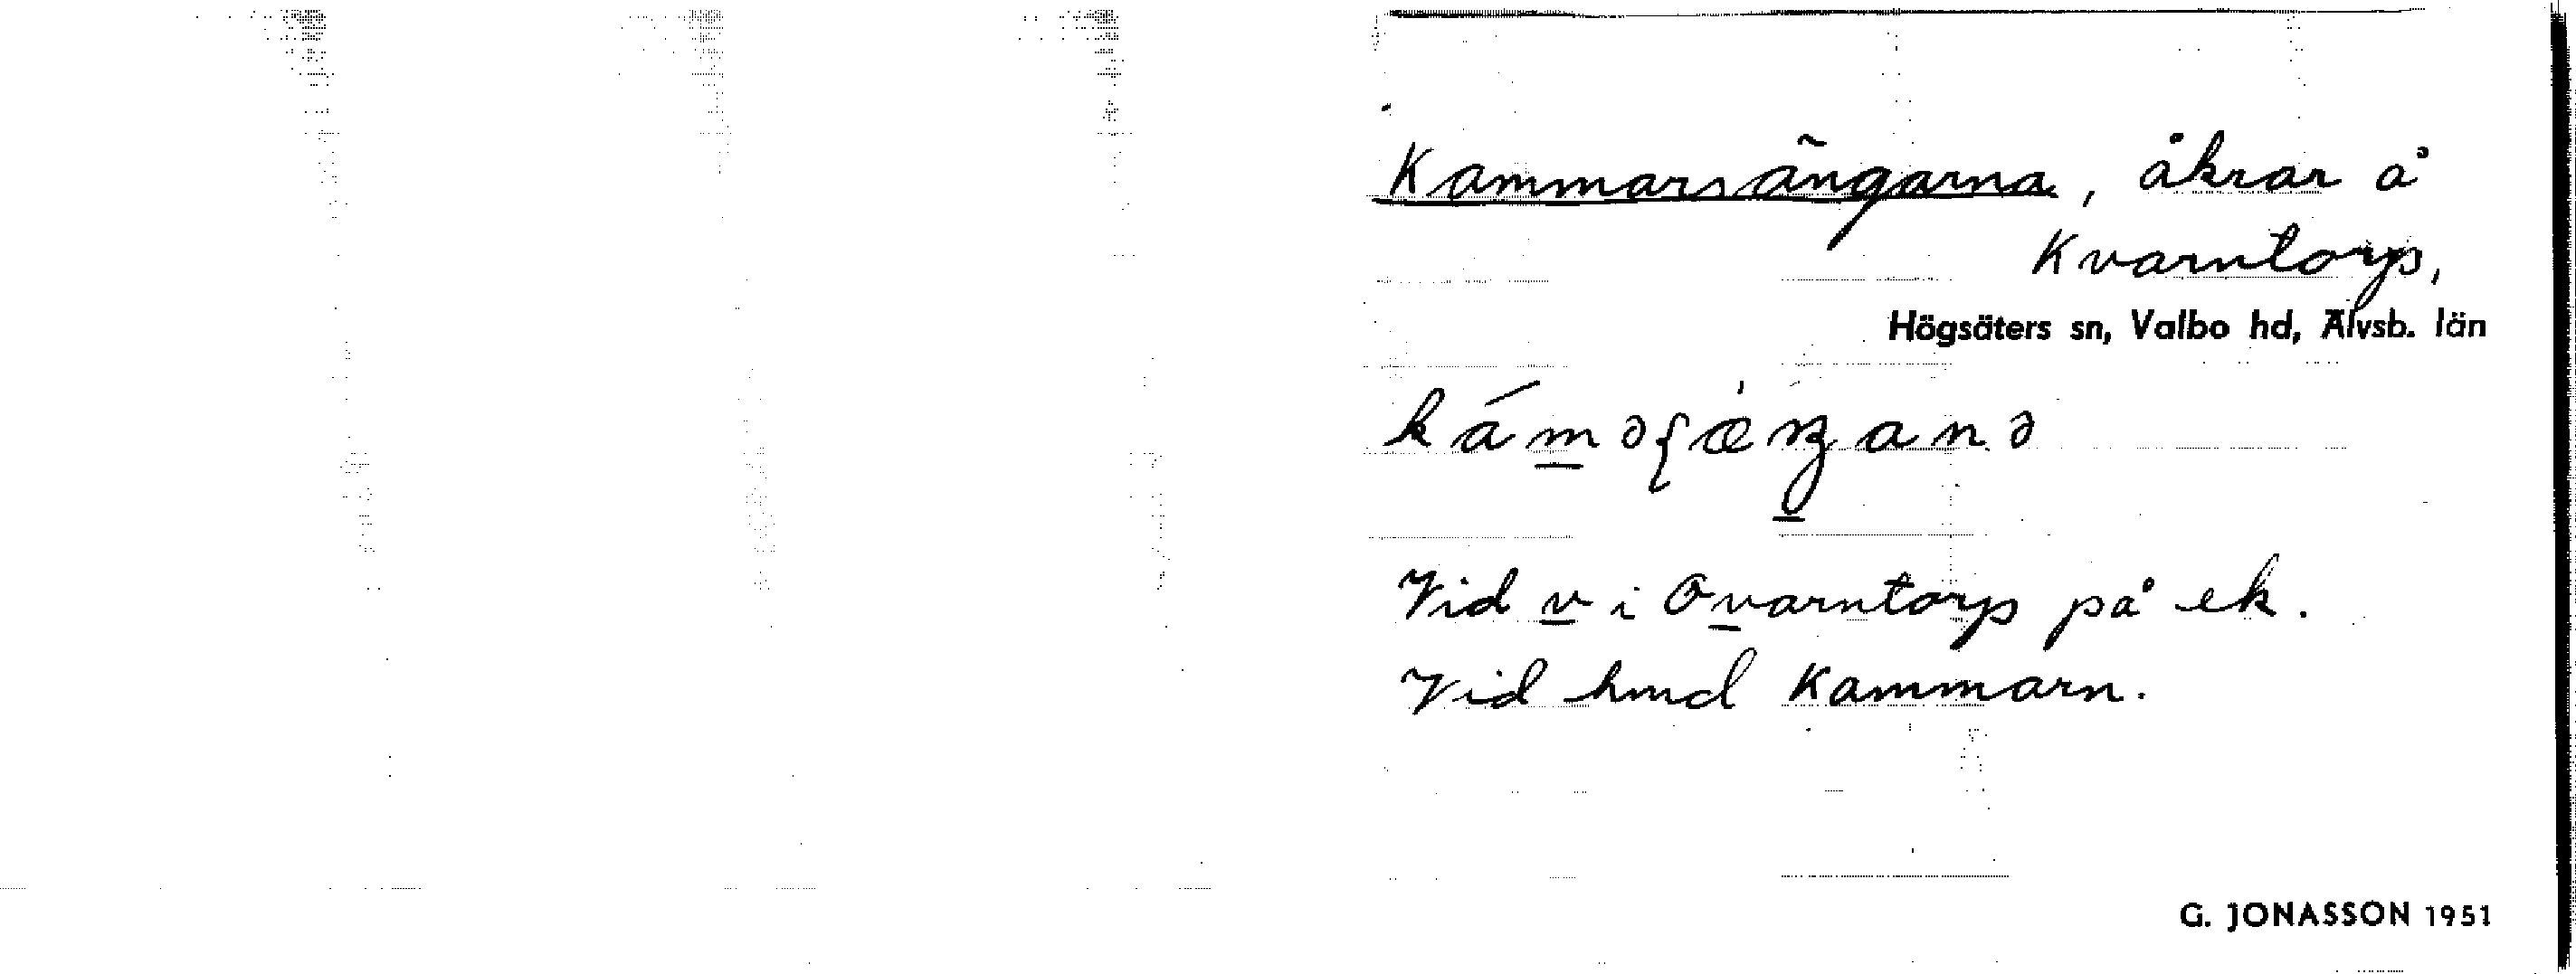 Kammarsängarna, åkrar å
Kvarntorp,
Högsäters sn, Valbo hd, Älvsb. län
Vid v i Ovarntorp på ek.
Vid hmd Kammarn.
G. JONASSON 1951